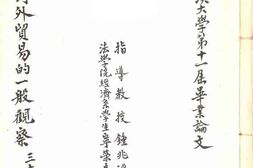 大學第十一屆畢業論文
指導教授鍾兆
法學院經濟系學生
外貿易的一般觀察